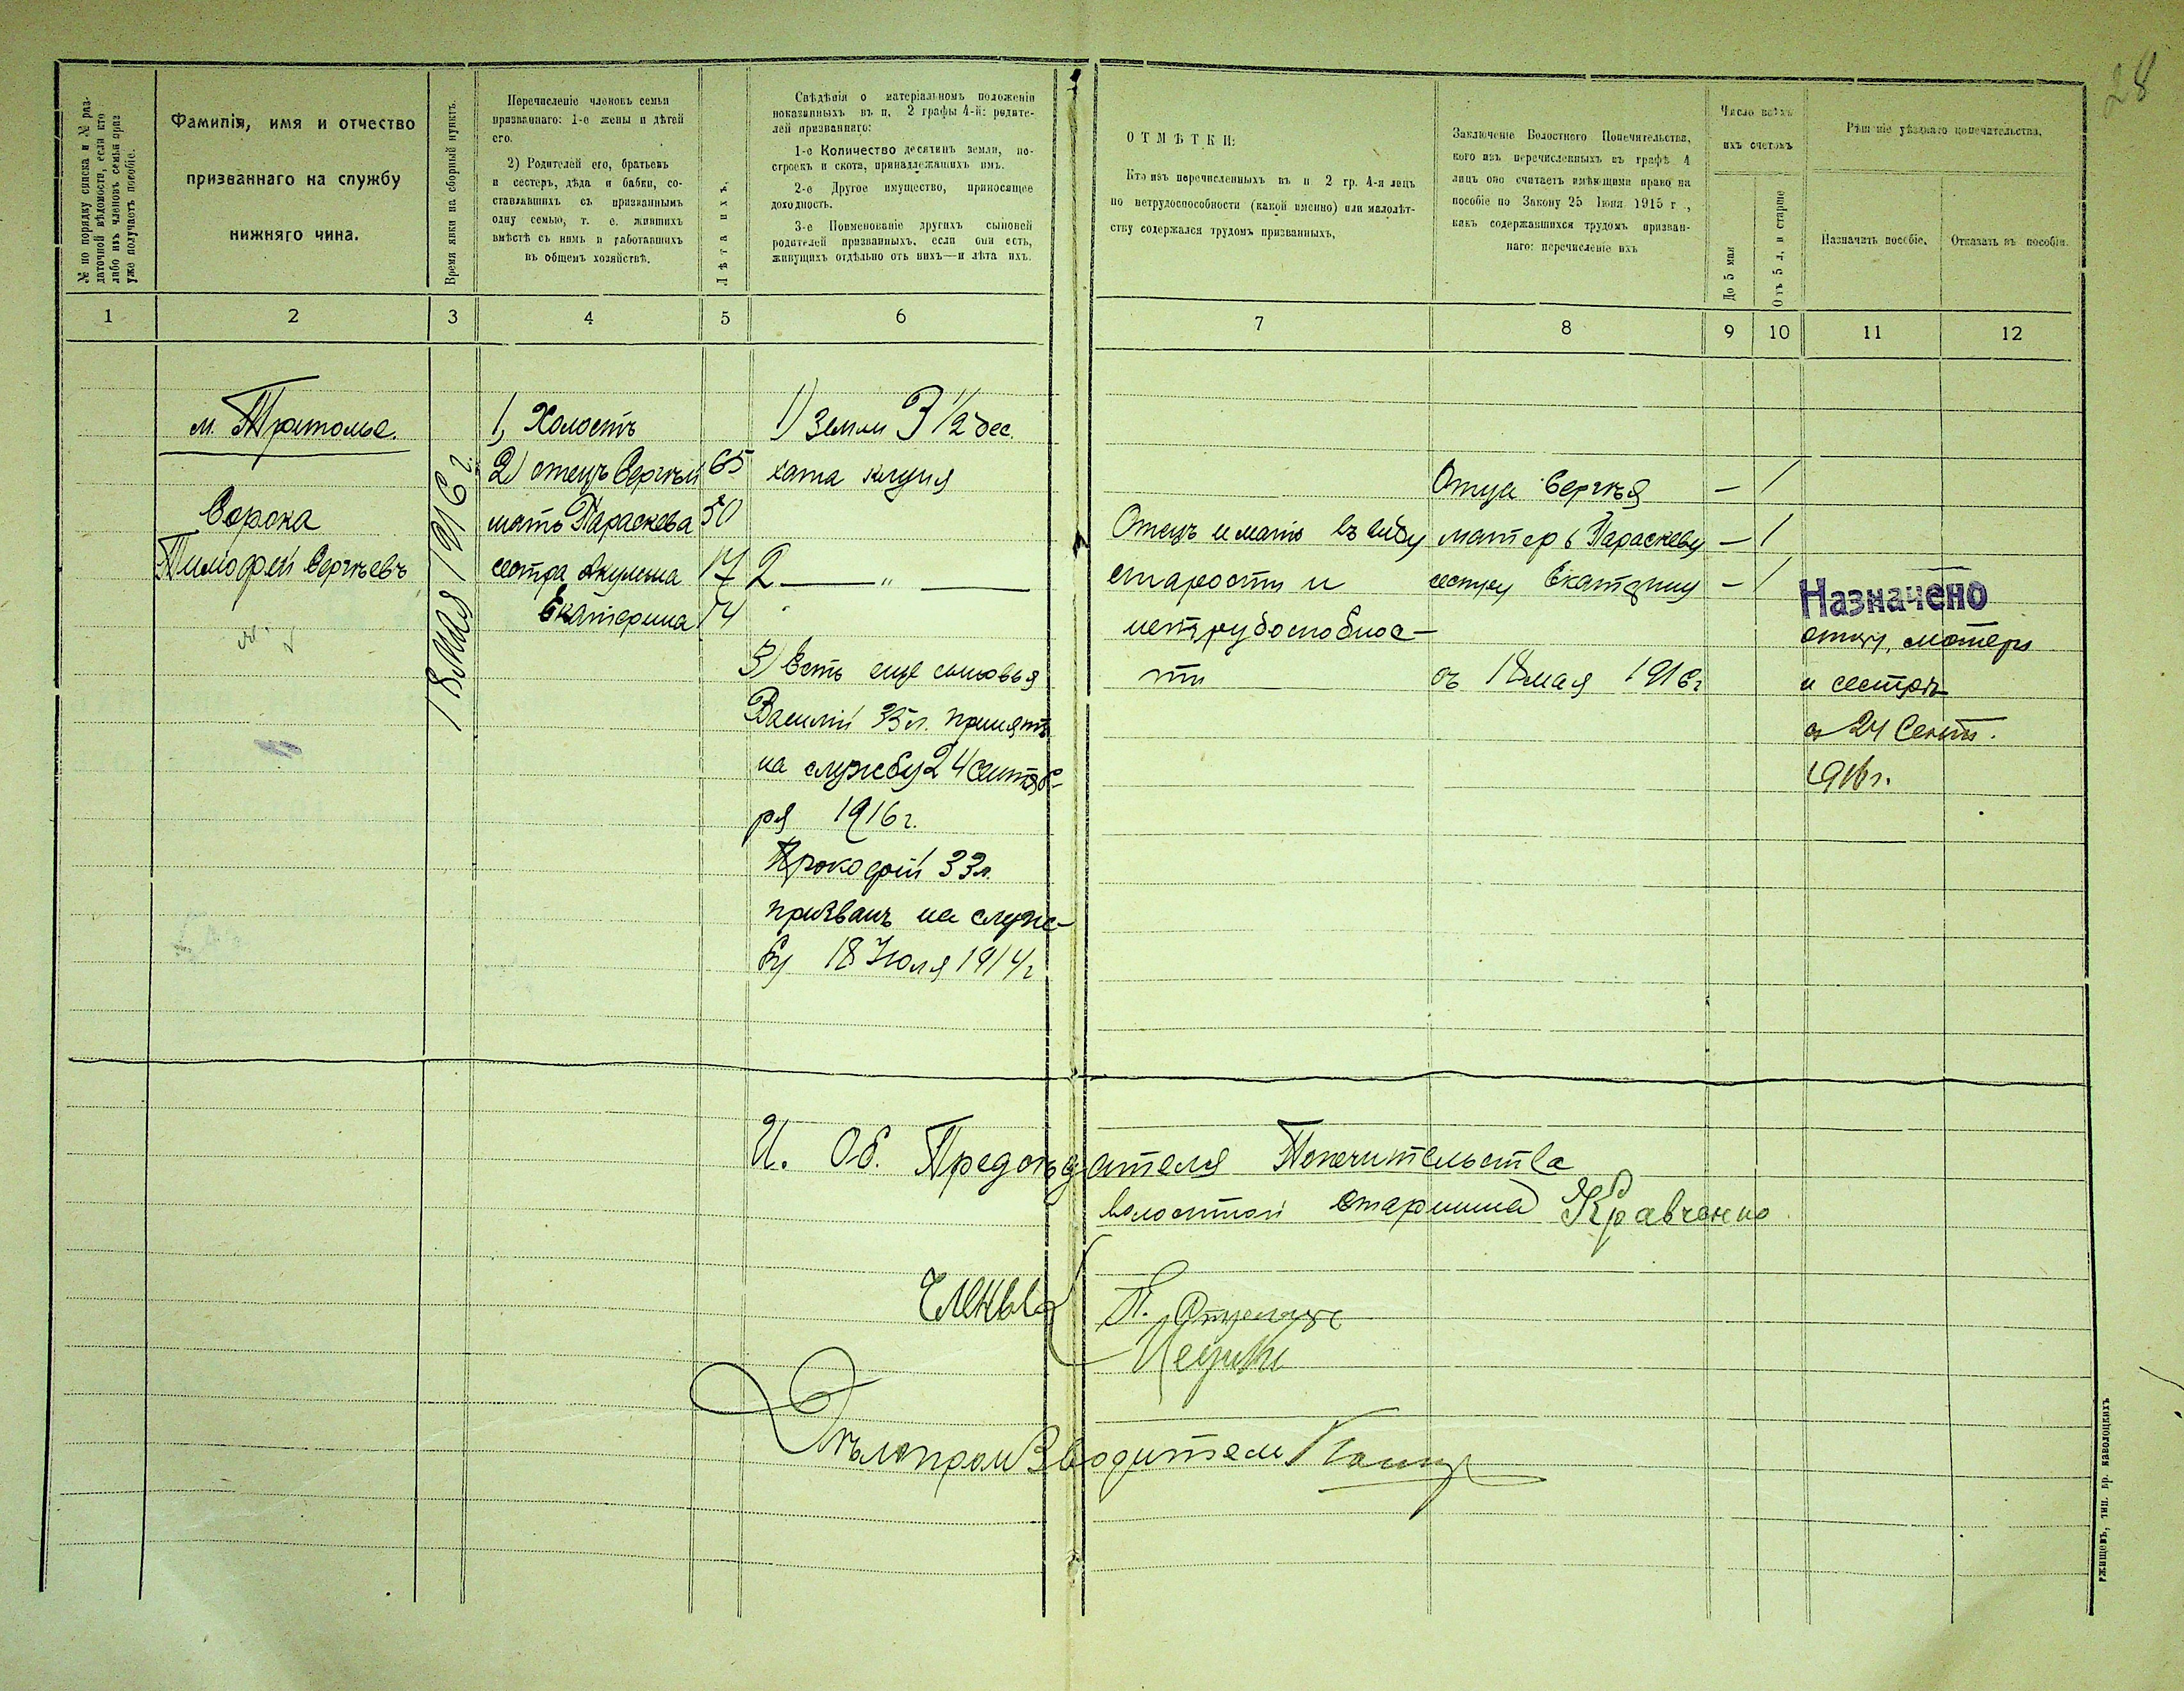 28
№ по порядку списка и № раз-
даточной вѣдомости, если кто
либо изъ членовъ семьи приз
уже получаетъ пособіе.
Фамилія, имя и отчество
призваннаго на службу
нижняго чина.
Время явки на сборный пунктъ.
Перечисленіе членовъ семьи
призваннаго: 1-е жены и дѣтей
его.
2) Родителей его, братьевъ
и сестеръ, дѣда и бабки, со-
ставлявшихъ съ призваннымъ
одну семью, т. е. жившихъ
вмѣстѣ съ нимъ и работавшихъ
въ общемъ хозяйствѣ.
Лѣта ихъ.
Свѣдѣнія о матеріальномъ положеніи
показанныхъ въ п. 2 графы 4-й: родите-
лей призваннаго:
1-е Количество десятинъ земли, по-
строекъ и скота, принадлежащихъ имъ.
2-е Другое имущество, приносящее
доходность.
3-е Поименованіе другихъ сыновей
родителей призванныхъ, если они есть,
живущихъ отдѣльно отъ нихъ—и лѣта ихъ.
ОТМѢТКИ:
Кто изъ перечисленныхъ въ п 2 гр. 4-я лицъ
по нетрудоспособности (какой именно) или малолѣт-
ству содержался трудомъ призванныхъ,
Заключеніе Волостного Попечительства,
кого изъ перечисленныхъ въ графѣ 4
лицъ оно считаетъ имѣющими право на
пособіе по Закону 25 Іюня 1915 г.,
какъ содержавшихся трудомъ призван-
наго: перечисленіе ихъ
Число всѣхъ
ихъ счетомъ
До 5 мая
Отъ 5 л. и старше
Рѣшеніе уѣзднаго попечительства.
Назначить пособіе.
Отказать въ пособіи.
1 2 3 4 5 6 7 8 9 10 11 12
м. Триполье.
Сорока
Тимофей Сергѣевъ
18 мая 1916 г.
1, Холостъ
2) отецъ Сергѣй 65
мать Параскева 50
сестра Акулина 17
Екатерина 14
1) Земли 3 1/2 дес.
хата клуня
2 — " —
3) Есть еще сыновья
Василій 35 л. принятъ
на службу 24 сентяб-
ря 1916 г.
Прокофій 33 л.
призванъ на служ-
бу 18 Іюля 1914 г
Отецъ и мать въ виду
старости и
нетрудоспобнос-
ти
Отца Сергѣя — 1
матерь Параскеву — 1
сестру Екатерину — 1
съ 18 мая 1916 г
Назначено
отцу, матери
и сестрѣ
съ 24 Сент.
1916 г.
И. Об. Предсѣдателя Попечительства
волостной старшина Кравченко
Члены
П.
Дѣлопроизводитель
ржищевъ, тип. бр. каволоцкихъ